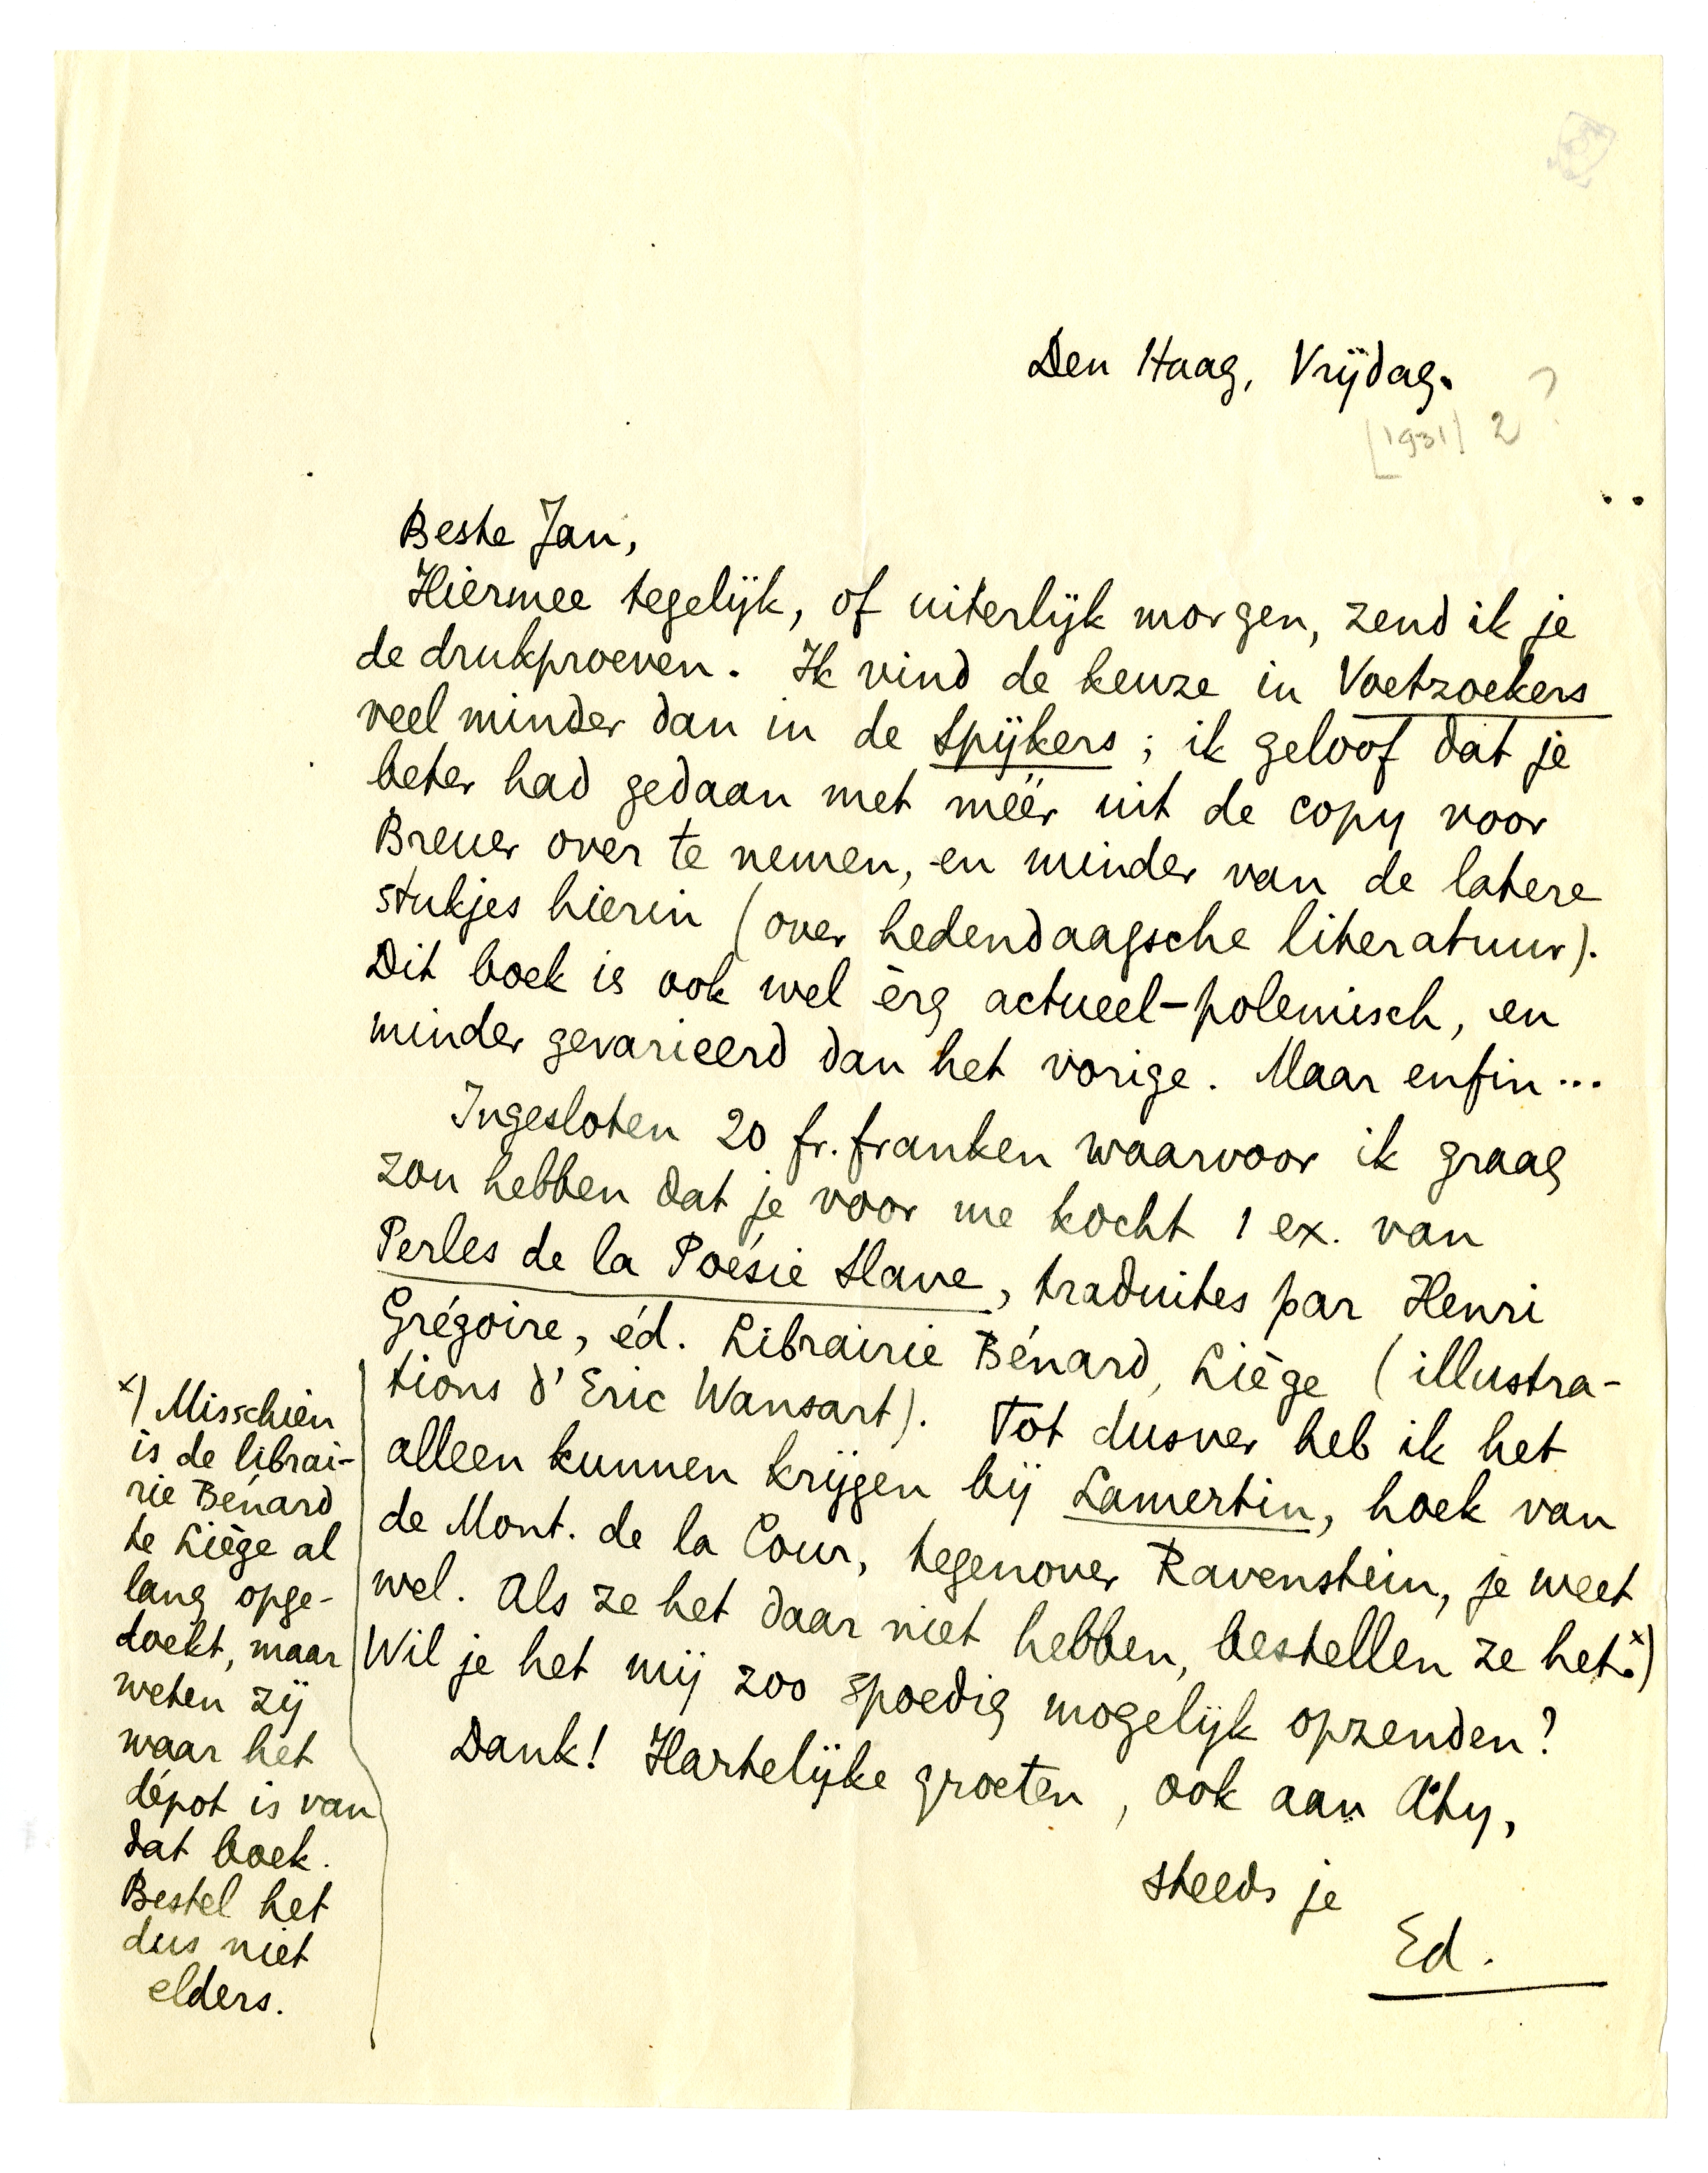 Den Haag, Vrijdag.
[1931] 2 ?
Beste Jan,
Hiermee tegelijk, of uiterlijk morgen, zend ik je
de drukproeven. Ik vind de keuze in Voetzoekers
veel minder dan in de Spijkers; ik geloof dat je
beter had gedaan met méér uit de copy voor
Breuer over te nemen, en minder van de latere
stukjes hierin (over hedendaagsche literatuur).
Dit boek is ook wel èrg actueel-polemisch, en
minder gevarieerd dan het vorige. Maar enfin...
Ingesloten 20 fr. franken waarvoor ik graag
zou hebben dat je voor me kocht 1 ex. van
Perles de la Poésie Slave, traduites par Henri
Grégoire, éd. Librairie Bénard, Liège (illustra-
tions d'Eric Wansart). Tot dusver heb ik het
alleen kunnen krijgen bij Lamertin, hoek van
de Mont. de la Cour, tegenover Ravenstein, je weet
wel. Als ze het daar niet hebben, bestellen ze het. x)
Wil je het mij zoo spoedig mogelijk opzenden?
Dank! Hartelijke groeten, ook aan Aty,
steeds je
Ed.
x) Misschien
is de librai-
rie Bénard
te Liège al
lang opge-
doekt, maar
weten zij
waar het
dépot is van
dat boek.
Bestel het
dus niet
elders.